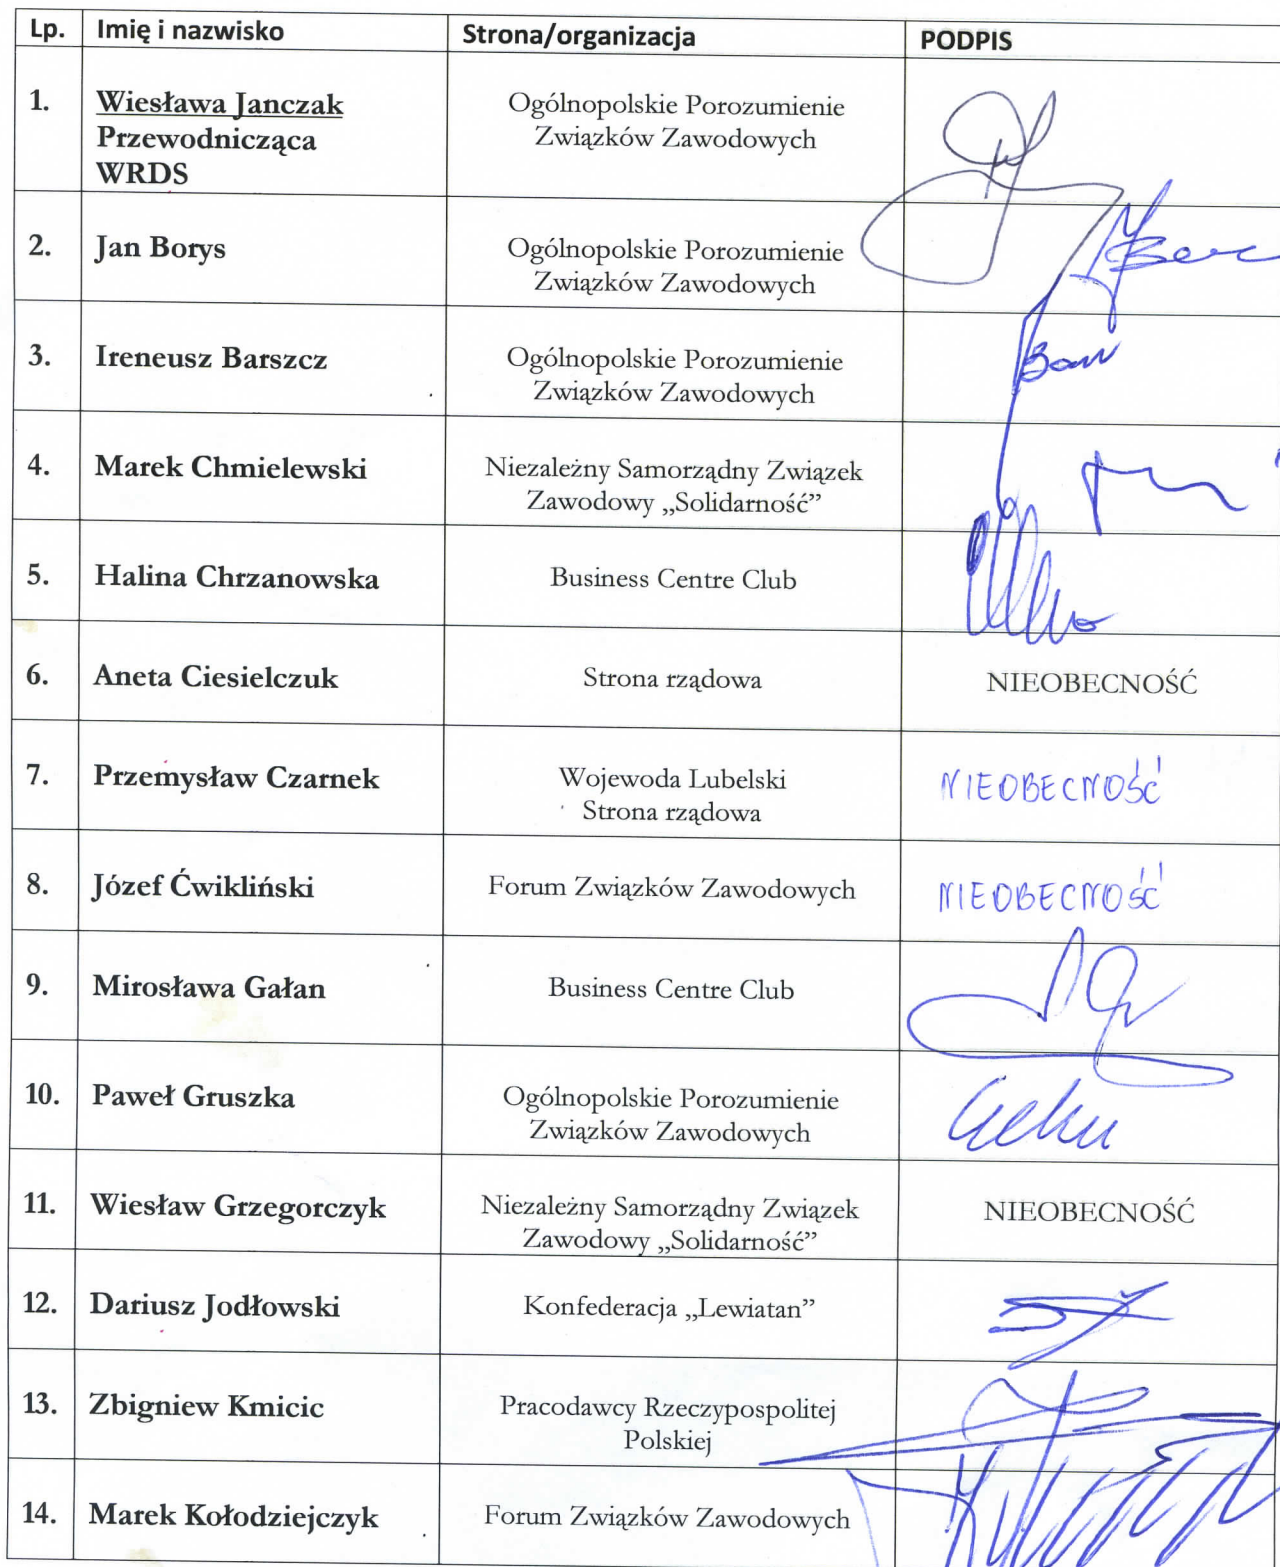 Lp. Imię i nazwisko Strona/organizacja PODPIS
1. Wiesława Janczak Ogólnopolskie Porozumienie
Przewodnicząca Związków Zawodowych
WRDS
2. Jan Borys Ogólnopolskie Porozumienie
Związków Zawodowych
3. Ireneusz Barszcz Ogólnopolskie Porozumienie
Związków Zawodowych
4. Marek Chmielewski Niezależny Samorządny Związek
Zawodowy „Solidarność”
5. Halina Chrzanowska Business Centre Club
6. Aneta Ciesielczuk Strona rządowa NIEOBECNOŚĆ
7. Przemysław Czarnek Wojewoda Lubelski NIEOBECNOŚĆ
Strona rządowa
8. Józef Ćwikliński Forum Związków Zawodowych NIEOBECNOŚĆ
9. Mirosława Gałan Business Centre Club
10. Paweł Gruszka Ogólnopolskie Porozumienie
Związków Zawodowych
11. Wiesław Grzegorczyk Niezależny Samorządny Związek NIEOBECNOŚĆ
Zawodowy „Solidarność”
12. Dariusz Jodłowski Konfederacja „Lewiatan”
13. Zbigniew Kmicic Pracodawcy Rzeczypospolitej
Polskiej
14. Marek Kołodziejczyk Forum Związków Zawodowych